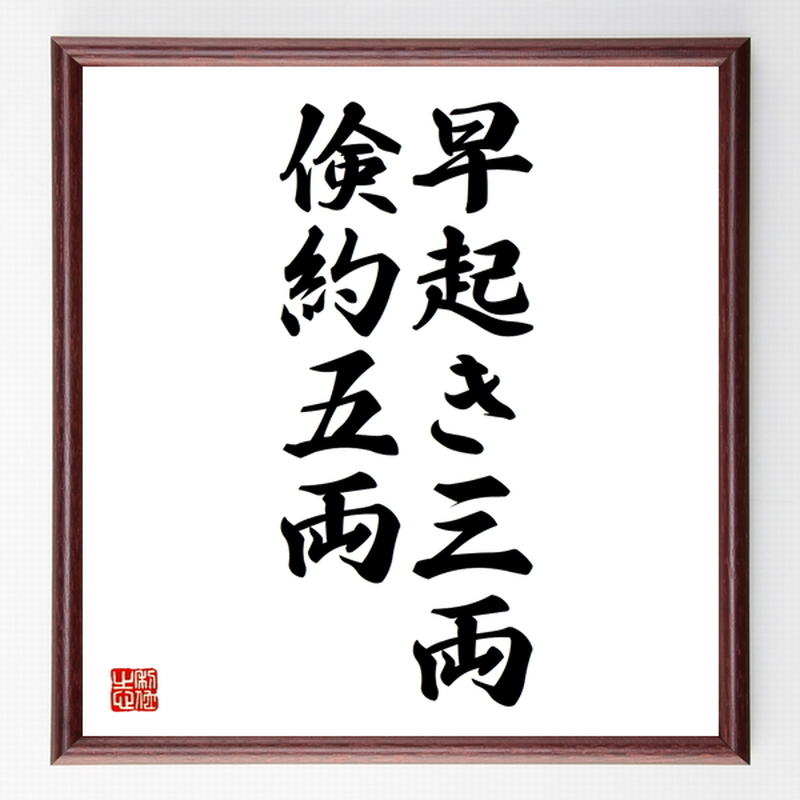 早起き三両
倹約五両